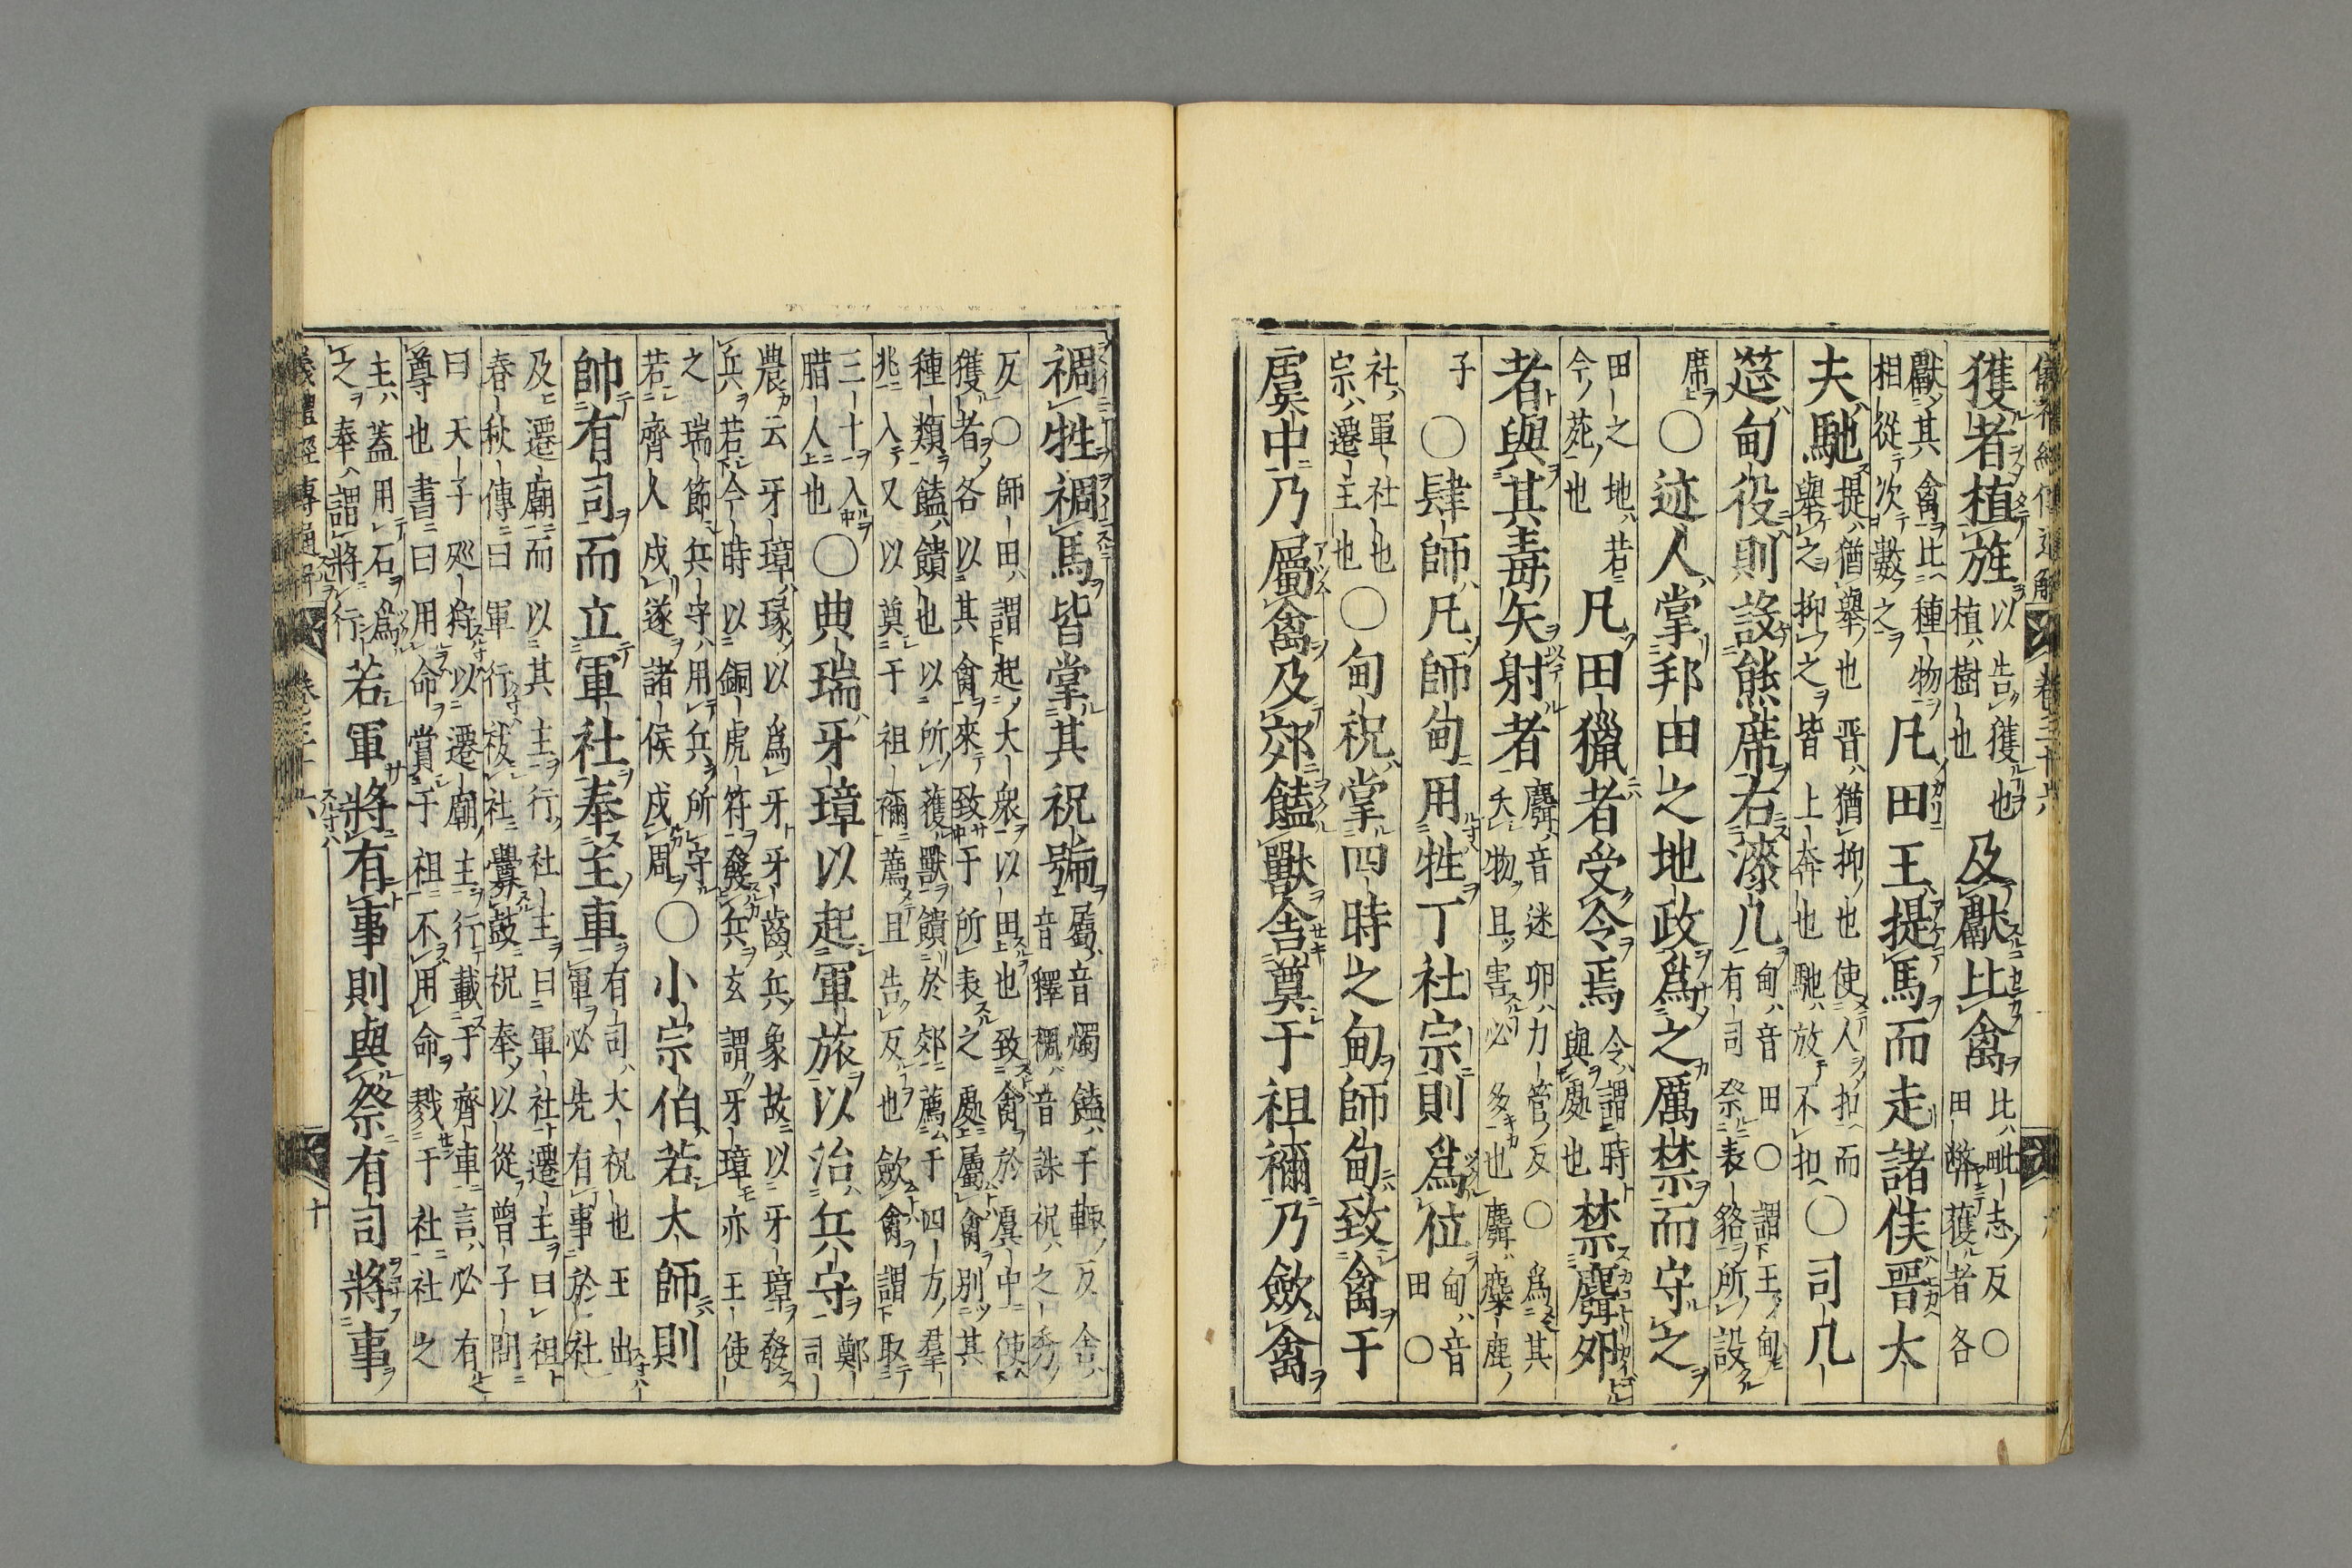 儀禮經傳通解 卷三十六
獲者植旌以告獲也植樹也及獻比禽比毗志反○田弊獲者各
獻其禽比種物相從次數之凡田王提馬而走諸侯晉大
夫馳提猶舉也晉猶抑也使人扣而舉之抑之皆止奔也馳放不扣○司几
筵甸役則設熊席右漆几甸音田○謂王甸有司祭表貉所設
席○迹人掌邦田之地政爲之厲禁而守之
田之地若今苑也凡田獵者受令焉令謂時與處也禁麛卵
者與其毒矢射者麛音迷卵力管反○爲其夭物且害必多也麛麋鹿
子○肆師凡師甸用牲于社宗則爲位甸音田○
社軍社也宗遷主也○甸祝掌四時之甸師甸致禽于
虞中乃屬禽及郊饁獸舍奠于祖禰乃斂禽
禂牲禂馬皆掌其祝號屬音燭饁于輒反舍音釋禂音誅祝之秀
反○師田謂起大衆以田也致禽於虞中使獲者各以其禽來致于所表之處屬禽別其
種類饁饋也以所獲獸饋於郊薦于四方羣兆入又以奠于祖禰薦且告反也斂禽謂取
三十入腊人也○典瑞牙璋以起軍旅以治兵守鄭司
農云牙璋瑑以爲牙牙齒兵象故以牙璋發兵若今時以銅虎符發兵玄謂牙璋亦王使
之瑞節兵守用兵所守若齊人戍遂諸侯戍周○小宗伯若大師則
帥有司而立軍社奉主車有司大祝也王出軍必先有事於社
及遷廟而以其主行社主曰軍社遷主曰祖春秋傳曰軍行祓社釁鼓祝奉以從曾子問
曰天子巡狩以遷廟主行載于齊車言必有尊也書曰用命賞于祖不用命戮于社社之
主蓋用石爲之奉謂將行若軍將有事則與祭有司將事
儀禮經傳通解 卷三十六 十